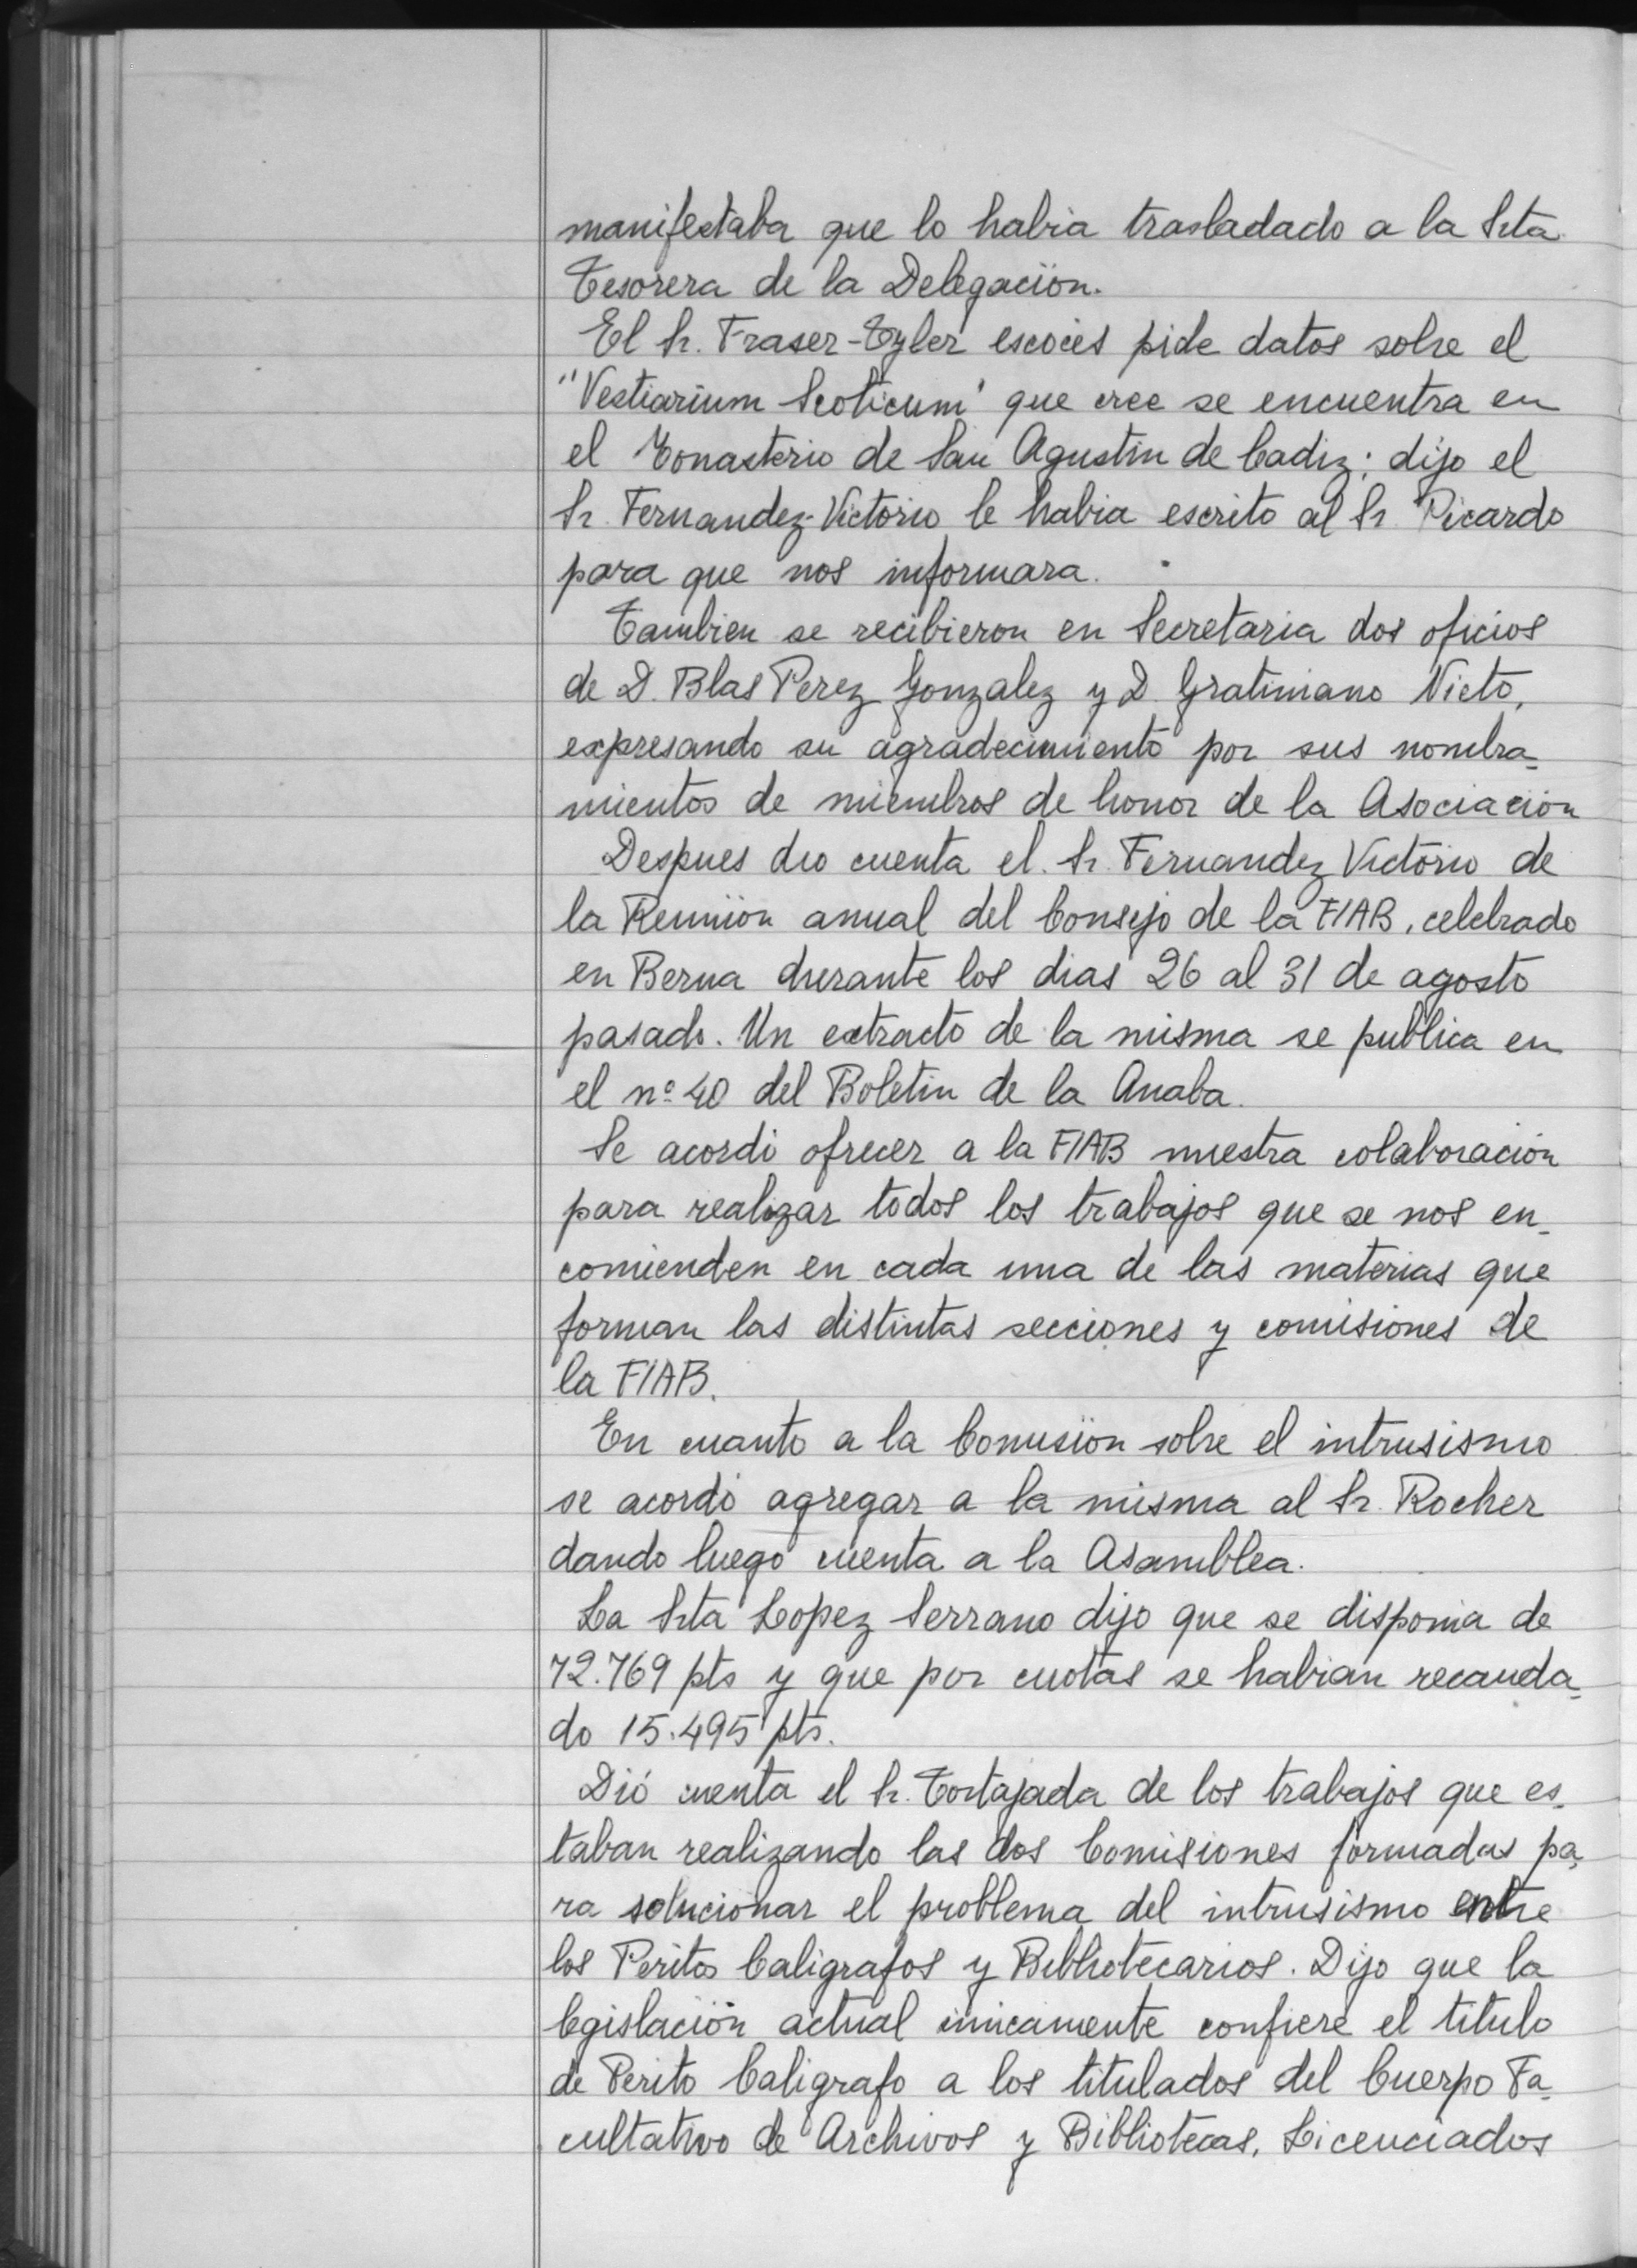 manifestaba que lo habia trasladado a la Srta
Tesorera de la Delegación.
El Sr. Fraser-Tyler escocés pide datos sobre el
"Vestiarium Scoticum" que cree se encuentra en
el Monasterio de San Agustin de Cadiz; dijo el
Sr. Fernandez-Victorio le habia escrito al Sr. Picardo
para que nos informara.
Tambien se recibieron en Secretaria dos oficios
de D. Blas Perez Gonzalez y D. Gratiniano Nieto,
expresando su agradecimiento por sus nombra-
mientos de miembros de honor de la Asociación
Despues dio cuenta el Sr. Fernandez Victorio de
la Reunión anual del Consejo de la FIAB, celebrado
en Berna durante los dias 26 al 31 de agosto
pasado. Un extracto de la misma se publica en
el nº 40 del Boletin de la Anaba.
Se acordó ofrecer a la FIAB nuestra colaboración
para realizar todos los trabajos que se nos en-
comienden en cada una de las materias que
forman las distintas secciones y comisiones de
la FIAB.
En cuanto a la Comisión sobre el intrusismo
se acordó agregar a la misma al Sr. Rocher
dando luego cuenta a la Asamblea.
La Srta Lopez Serrano dijo que se disponia de
72.769 pts y que por cuotas se habian recauda-
do 15.495 pts.
Dió cuenta el Sr. Tortajada de los trabajos que es-
taban realizando las dos Comisiones formadas pa-
ra solucionar el problema del intrusismo entre
los Peritos Caligrafos y Bibliotecarios. Dijo que la
legislación actual únicamente confiere el titulo
de Perito Caligrafo a los titulados del Cuerpo Fa-
cultativo de Archivos y Bibliotecas, Licenciados